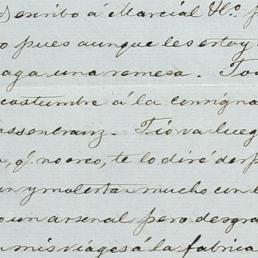 escribo á Marcial Hº. p
o pues aunque les estoy
aga una remesa. To
costumbre á la consigna
assencranz. Tiova lueg
, q. no creo, te lo diré des p
un y molestar mucho con l
o un arsenal pero desgra
n mis viages á la fabrica